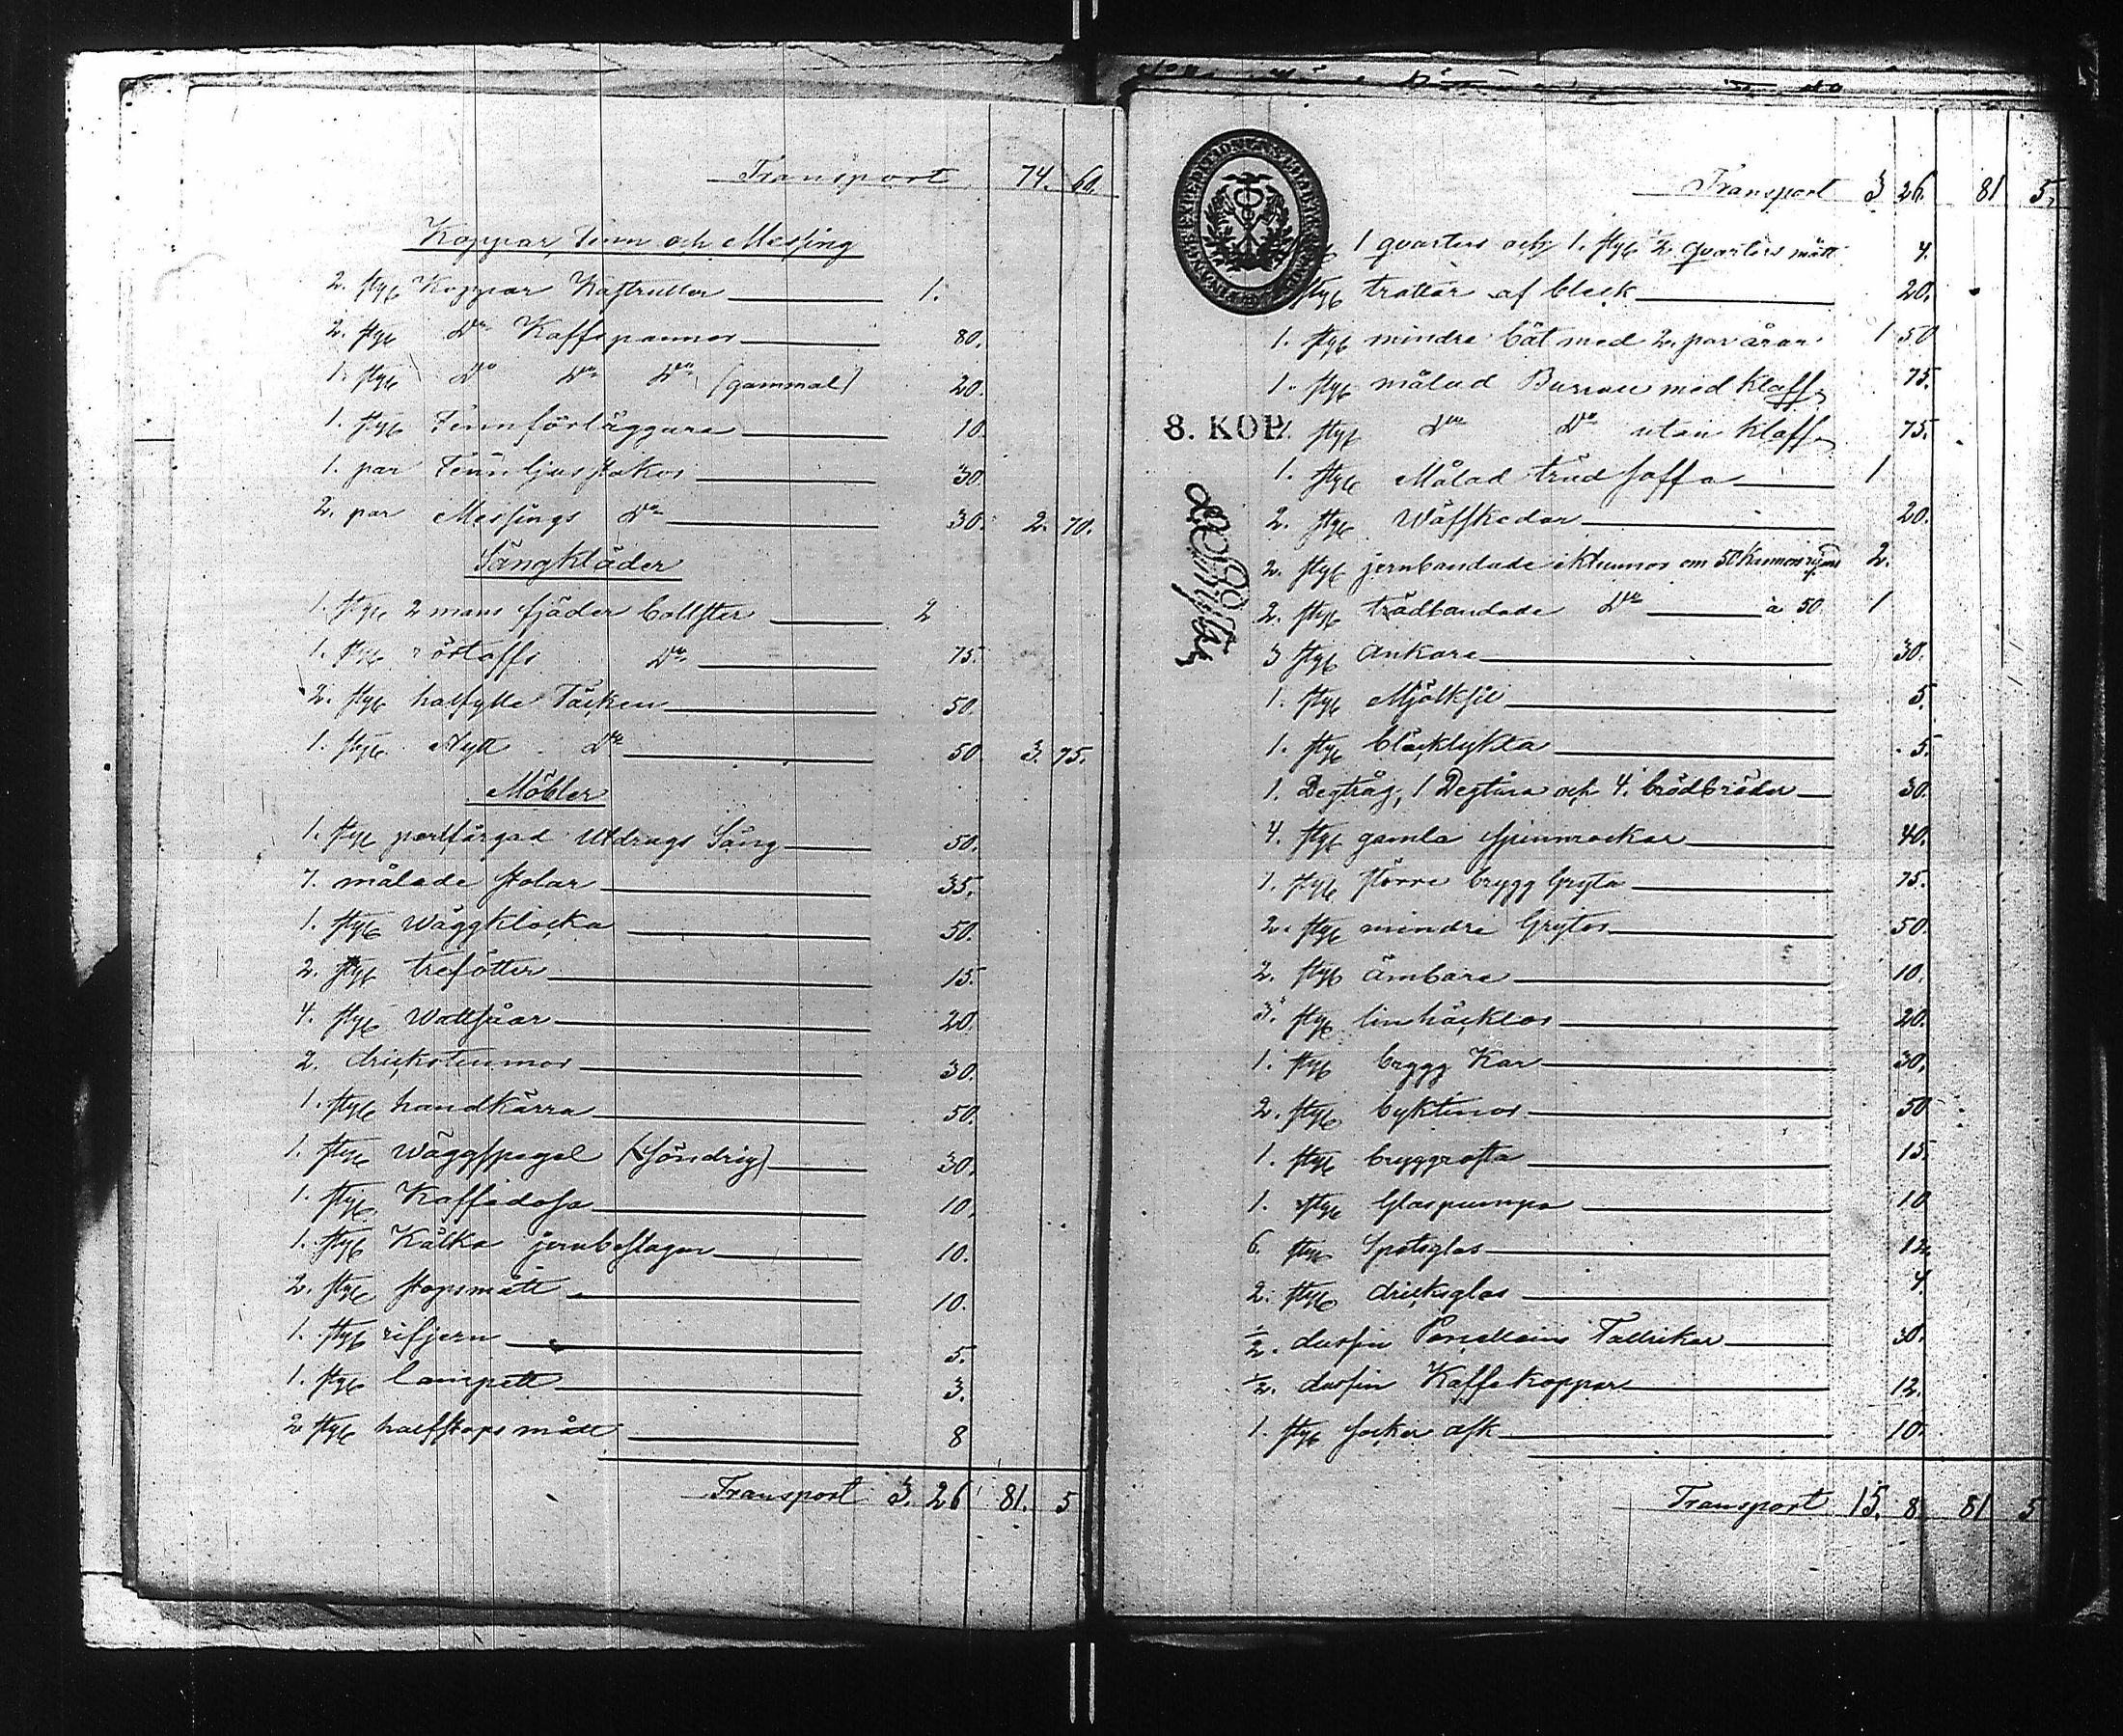 Transport 74. 60.
Koppar, Tenn och Messing
2. styg Koppar Kastruller 1.
2. styg Do Kaffepannor 80.
1. styg Do Do Do (gammal) 20.
1. styg Tennförläggare 10.
1. par Tennljusstakor 30.
2. par Messings Do 30. 2. 70.
Sängkläder
1. styg 2 mans fjäder bollster 2
1. styg Do 75.
2. styg halfylle Täcken 50.
1. styg Nytt Do 50. 3. 75.
Möbler
1. styg perlfärgad Utdrags Säng 50.
7. målade stolar 35.
1. styg Wäggklocka 50.
2. styg trefötter 15.
4. styg Wattsåar 20.
2. drickstunnor 30.
1. styg handkärra 50.
1. styg Wäggspegel (Söndrig) 30.
1. styg Kaffedosa 10.
1. styg Kälka jernbeslagen 10.
2. styg stopsmått 10.
1. styg rifjern 5.
1. styg lampett 3.
2 styg halfstops mått 8
Transport 3. 26 81. 5
Transport 3 26. 81 5.
1 qvarters och 1. styg 1/2 qvarters mått 4.
styg trattar af bleck 20.
1. styg mindre båt med 2. par åror 1 50
1. styg målad Bureau med klaff 75.
8. KOP.
1. styg Do Do utan klaff 75.
1. styg Målad träd soffa 1
2. styg Wäfskedar 20.
2. styg jernbandade ektunnor om 50 Kannor 2.
2. styg trädbandade Do à 50. 1
3 styg Ankare 30.
1. styg Mjölksil 5.
1. styg bläcklykta 5.
1. Degtråg, 1 Degtina och 4. brödbräder 30.
4. styg gamla spinnrockar 40.
1. styg större brygg Gryta 75.
2. styg mindre Grytor 50.
2. styg ämbare 10.
3. styg linhäcklor 20.
1. styg brygg Kar 30.
2. styg byktinor 50
1. styg bryggrosta 15.
1. styg Glaspumpa 10
6. styg Spetsglas 12.
2. styg dricksglas 4.
1/2. dussin Porcellains Tallrikar 30.
1/2. dussin Kaffekoppar 12.
1. styg socker ask 10.
Transport 15. 8. 81 5